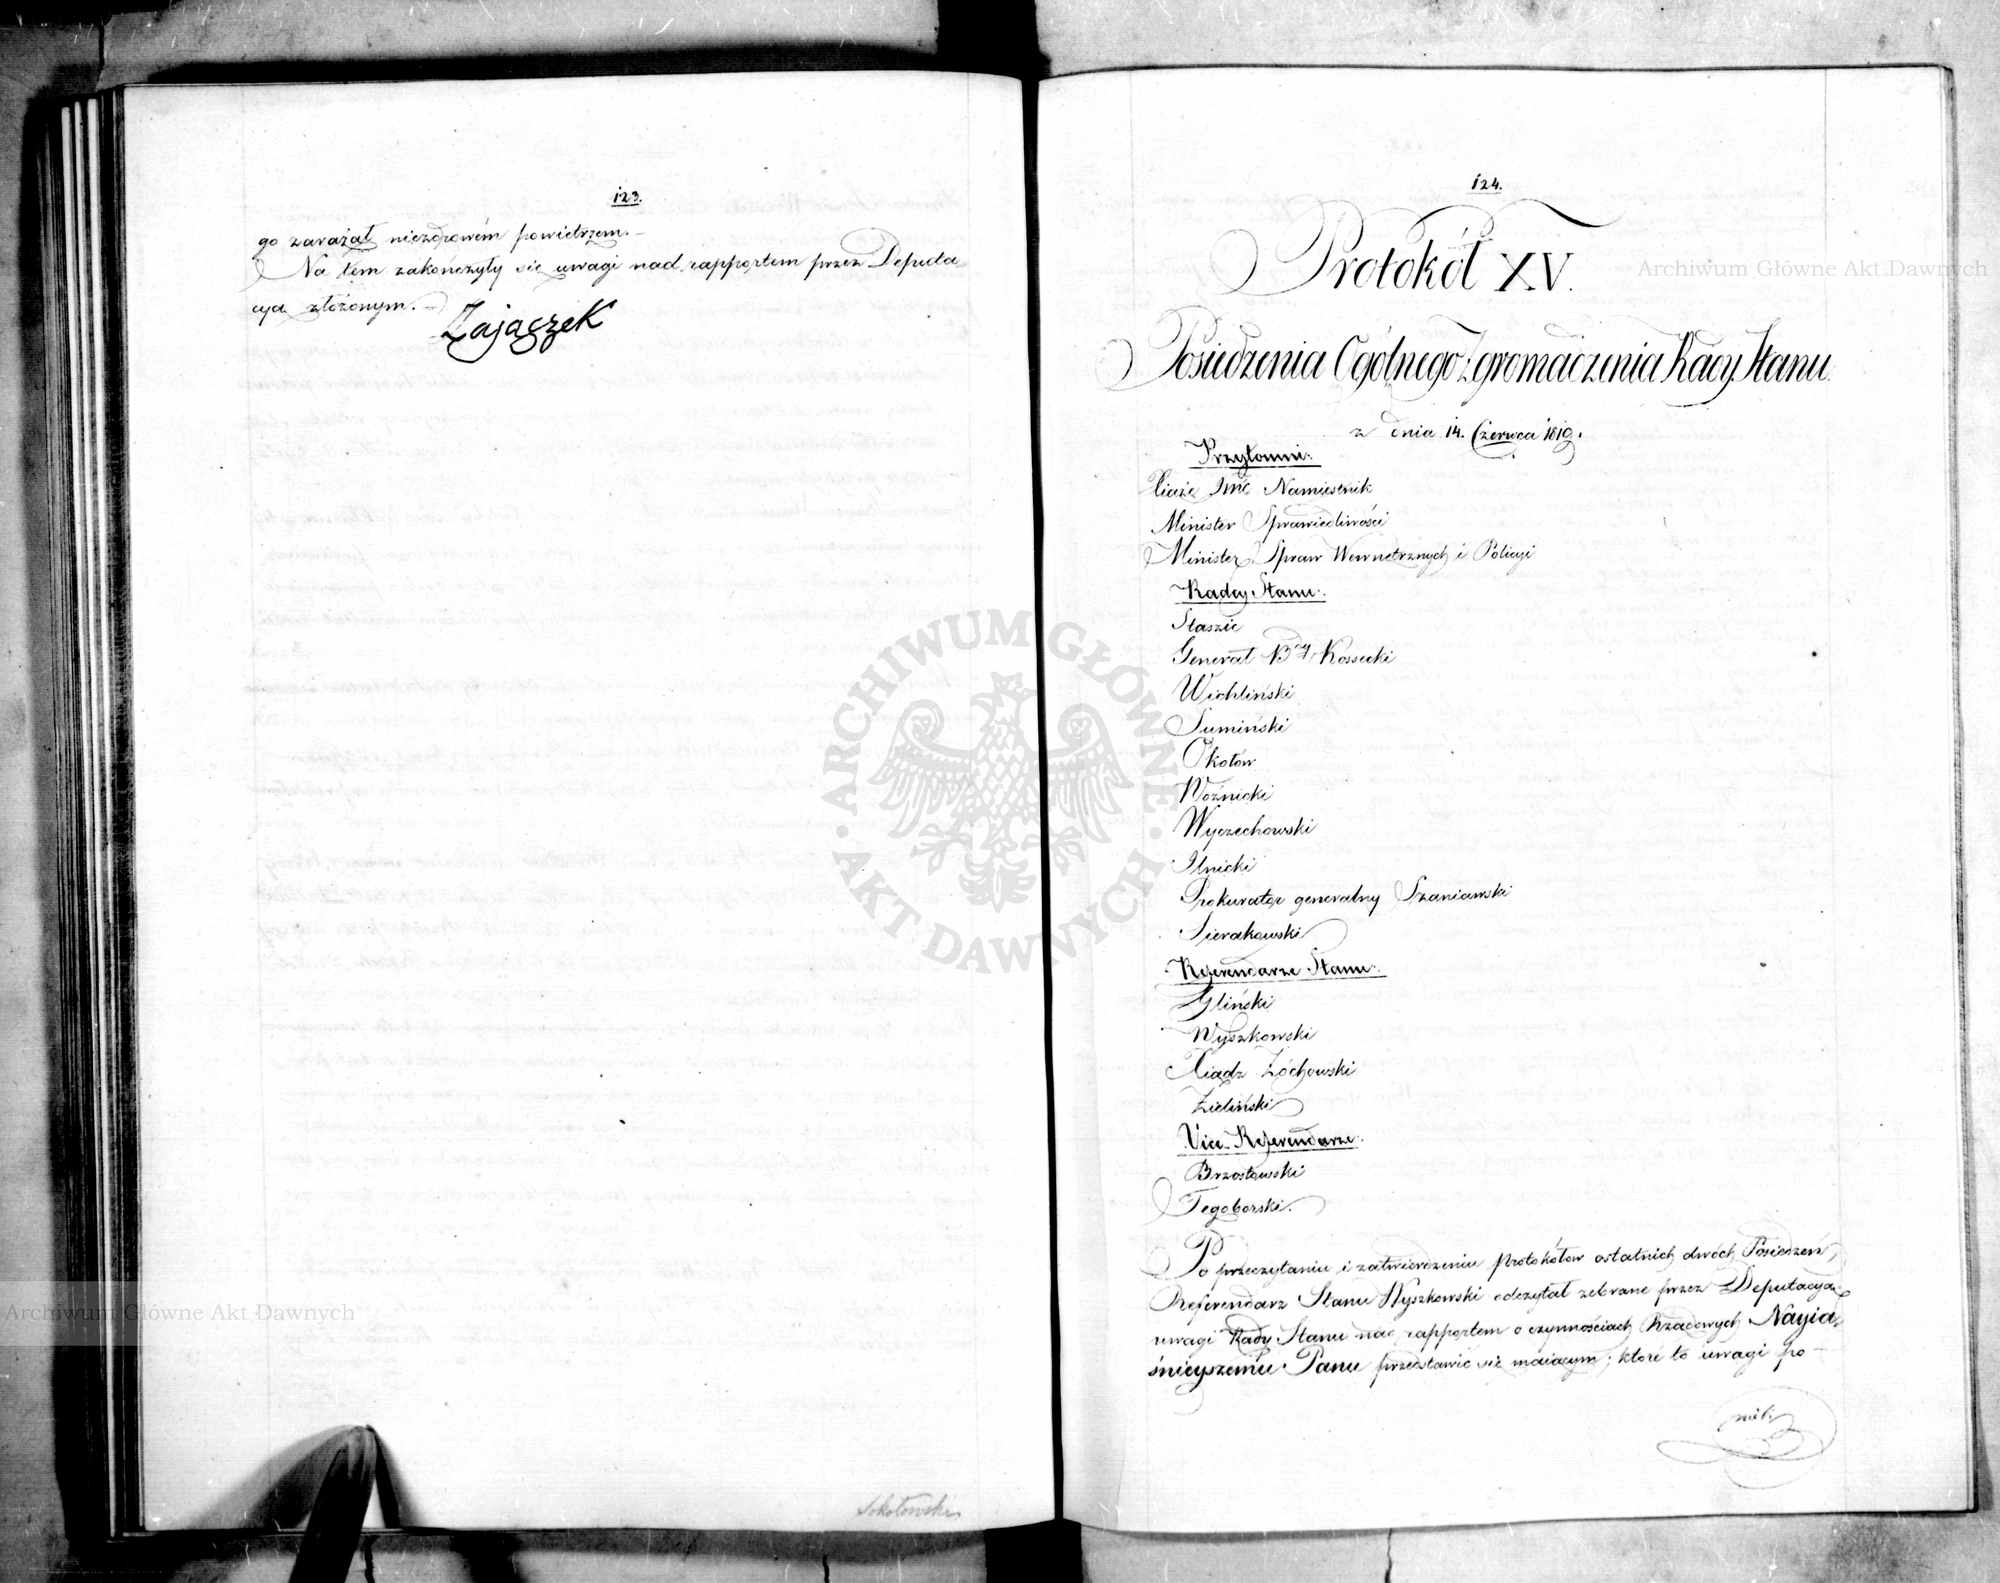 123.
go zarażał niezdrowém powietrzem.—
Na tém zakończyły się uwagi nad rapportem przez Deputa-
cyą złożonym.—
Zajączek
Sokołowski
124.
Protokół XV.
Posiedzenia Ogólnego Zgromadzenia Rady Stanu.
z dnia 14. Czerwca 1819.
Przytomni:
Xiąże Jmć Namiestnik
Minister Sprawiedliwości
Minister Spraw Wewnętrznych i Policyi
Radcy Stanu:
Staszic
Generał Bdy Kossecki
Wichliński
Sumiński
Okołów
Woźnicki
Wyczechowski
Ilnicki
Prokurator generalny Szaniawski
Sierakowski
Referendarze Stanu:
Gliński
Wyszkowski
Xiądz Zóchowski
Zieliński
Vice-Referendarze:
Brzostowski
Tęgoborski.
Po przeczytaniu i zatwierdzeniu protokółow ostatnich dwóch Posiedzeń,
Referendarz Stanu Wyszkowski odczytał zebrane przez Deputacyą
uwagi Rady Stanu nad rapportem o czynnościach Rządowych Nayia-
śnieyszemu Panu przedstawić się maiącym; które to uwagi po-
Archiwum Główne Akt Dawnych
Archiwum Główne Akt Dawnych
ARCHIWUM GŁÓWNE · AKT DAWNYCH ·